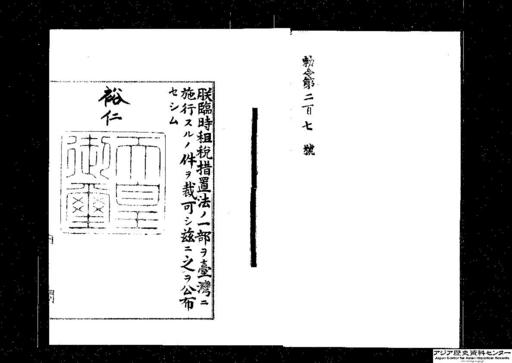 勅令第二百七號
朕臨時租税措置法ノ一部ヲ臺灣ニ
施行スルノ件ヲ裁可シ茲ニ之ヲ公布
セシム
裕仁
天皇御璽
アジア歴史資料センター
Japan Center for Asian Historical Records